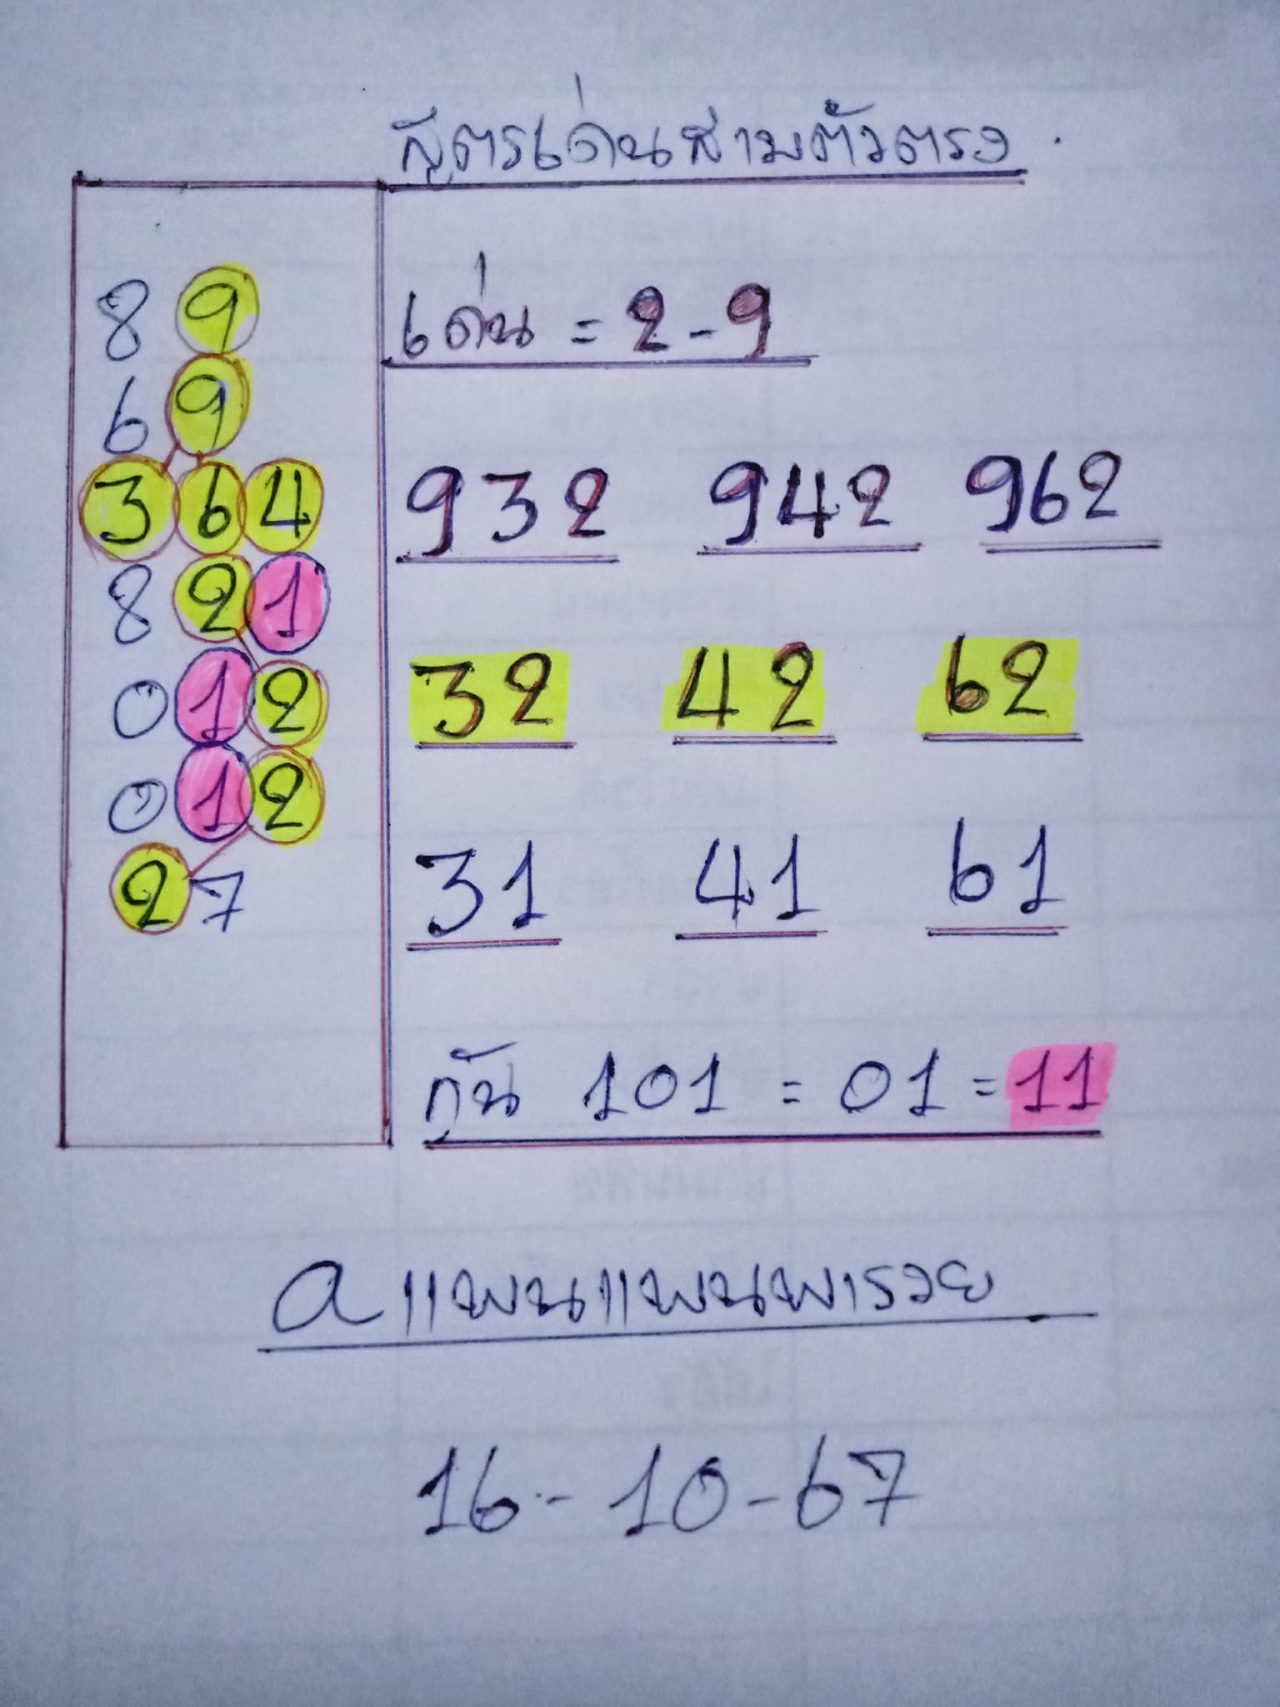 สูตรเด่นสามตัวตรง
8 9
6 9
3 6 4
8 2 1
0 1 2
0 1 2
2 7
เด่น = 2 - 9
932 942 962
32 42 62
31 41 61
กัน 101 = 01 = 11
a แพนแพนพารวย
16 - 10 - 67